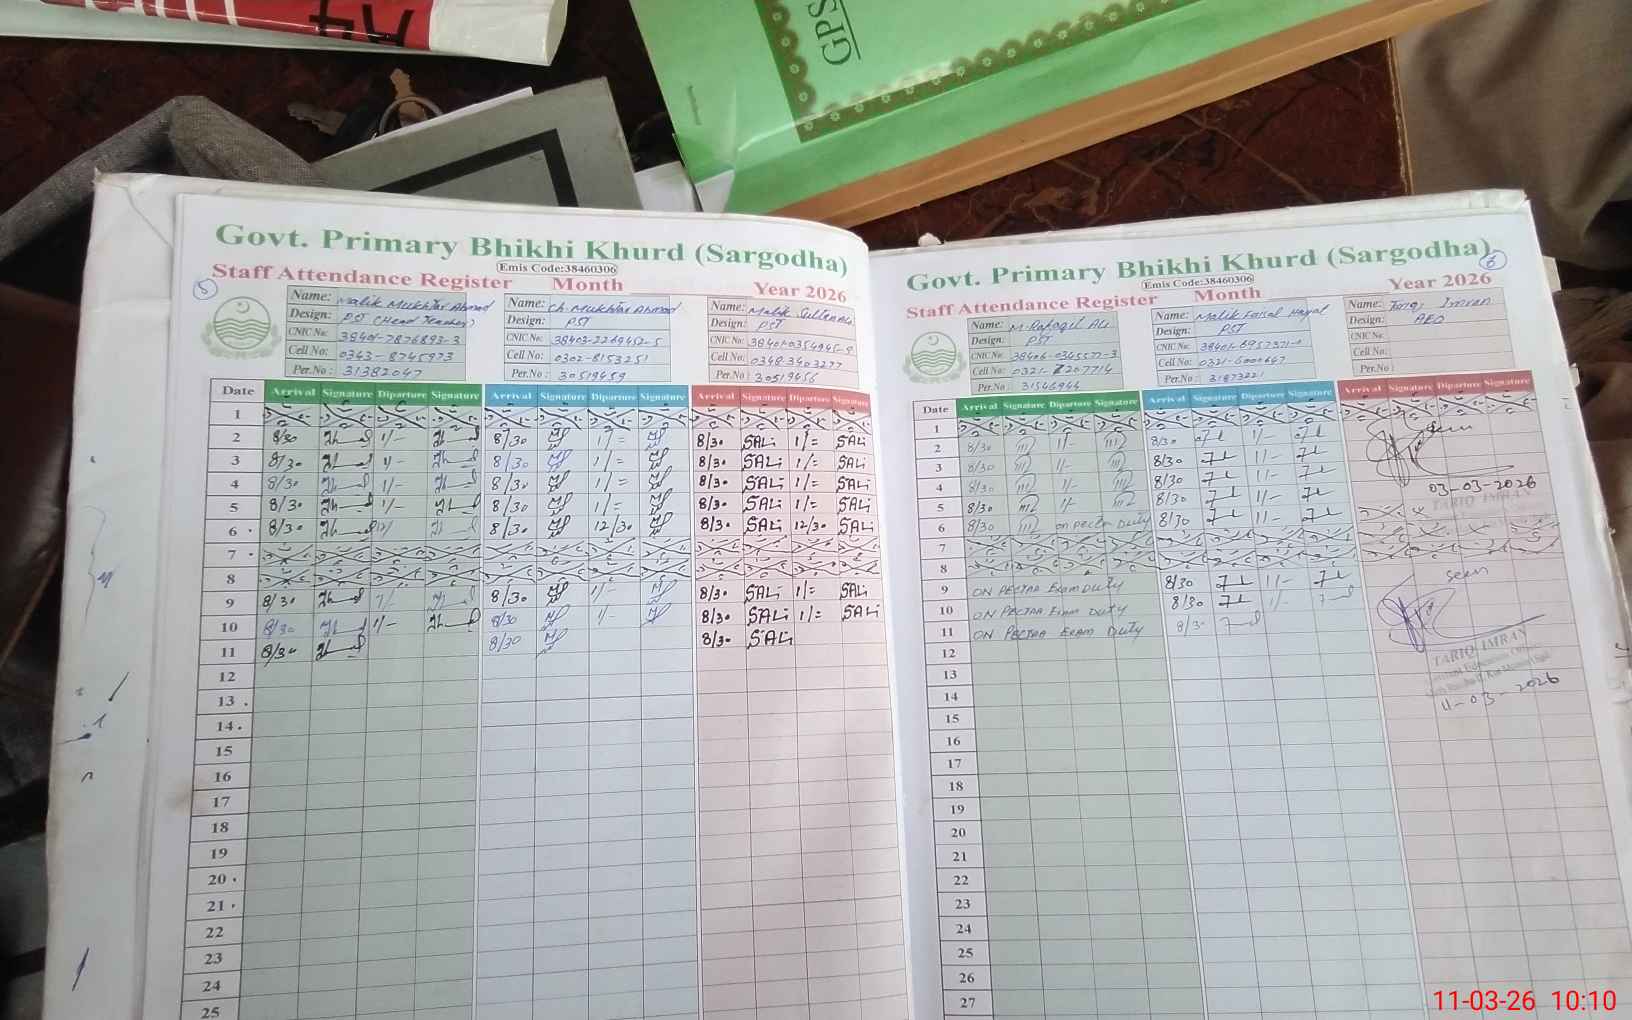 GPS
Govt. Primary Bhikhi Khurd (Sargodha)
Emis Code:38460306
Staff Attendance Register Month Year 2026
5
Name: Malik Mukhtar Ahmad
Design: PST (Head Teacher)
CNIC No: 38401-7876893-3
Cell No: 0343-8745973
Per.No: 31382047
Name: Ch. Mukhtar Ahmad
Design: PST
CNIC No: 38403-2269452-5
Cell No: 0302-8153251
Per.No: 30519459
Name: Malik Sultan Ali
Design: PST
CNIC No:
Cell No: 0348-3403277
Per.No: 30519456
Date Arrival Signature Diparture Signature Arrival Signature Diparture Signature Arrival Signature Diparture Signature
1
2 8/30 1/- 8/30 1/= 8/30 SALi 1/= SALi
3 8/30 1/- 8/30 1/= 8/30 SALi 1/= SALi
4 8/30 1/- 8/30 1/= 8/30 SALi 1/= SALi
5 8/30 1/- 8/30 1/= 8/30 SALi 1/= SALi
6 8/30 8/30 12/30 8/30 SALi 12/30 SALi
7
8
9 8/30 1/- 8/30 1/- 8/30 SALi 1/= SALi
10 8/30 1/- 8/30 1/- 8/30 SALi 1/= SALi
11 8/30 8/30 8/30 SALi
12
13
14
15
16
17
18
19
20
21
22
23
24
25
Govt. Primary Bhikhi Khurd (Sargodha)
6
Emis Code:38460306
Staff Attendance Register Month Year 2026
Name: M. Ali
Design: PST
CNIC No: 38406-0365577-3
Cell No: 0321-7207714
Per.No: 31546944
Name: Malik Faisal Hayat
Design: PST
CNIC No:
Cell No: 0321-6000647
Per.No: 31873221
Name: Tariq Imran
Design: AEO
CNIC No:
Cell No:
Per.No:
Date Arrival Signature Diparture Signature Arrival Signature Diparture Signature Arrival Signature Diparture Signature
1
2 8/30 1/- 8/30 1/- Seen
3 8/30 1/- 8/30 1/-
4 8/30 1/- 8/30 1/- 03-03-2026
5 8/30 1/- 8/30 1/- TARIQ IMRAN
6 8/30 on pectra Duty 8/30 1/-
7
8
9 ON PECTAA Exam Duty 8/30 1/- Seen
10 ON PECTAA Exam Duty 8/30 1/-
11 ON PECTAA EXAM Duty 8/30
TARIQ IMRAN
11-03-2026
12
13
14
15
16
17
18
19
20
21
22
23
24
25
26
27
11-03-26 10:10